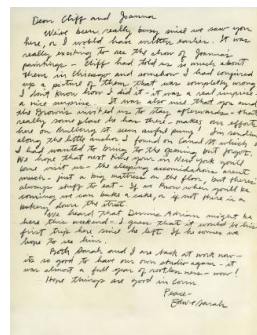 Dear Cliff and Joanna
We've been really busy since we saw you
here, or I would have written earlier. It was
really exciting to see the show of Joanna's
paintings - Cliff had told us so much about
them in Chicago and somehow I had conjured
up a picture of them that was completely wrong.
I don't know how I did it - it was a real surprise -
a nice surprise. It was also nice that you and
the Browns invited us to stay afterwards - that's
really some place he has they - makes our efforts
here on building it seem awful puny. I'm sending
along the little anchor I found on Canal St. which
I had wanted to bring to the opening but forgot.
We hope that next time you're in New York you'll
come visit us - the sleeping accomodations aren't
much - just a big mattress on the floor, but there's
always stuff to eat - If we know when you'll be
coming we can bake a cake, or if not there is a
bakery down the street.
We heard that Dennis Adrian might be
here this weekend - I guess that would be his
first trip here since he left. If he comes we
hope to see him.
Both Sarah and I are back at work now -
its so good to have our own studio again - it
was almost a full year of rotten news - wow!
Hope things are good in
Peace -
Ed & Sarah